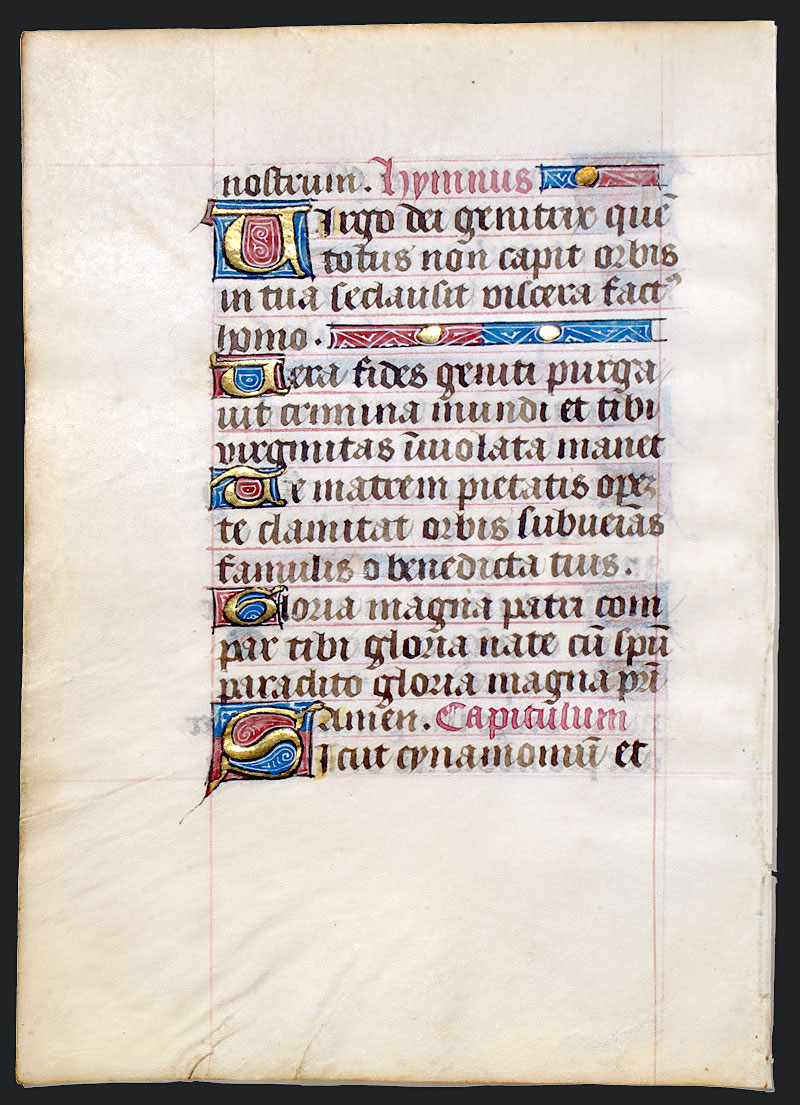 nostrum. hymnus
Uirgo dei genitrix quē
totus non capit orbis
in tua se clausit viscera fact⁹
homo.
Uera fides geniti purga
uit crimina mundi et tibi
virginitas īuiolata manet
Te matrem pietatis opeꝫ
te clamitat orbis subueīas
famulis o benedicta tuis.
Gloria magna patri com
par tibi gloria nate cū spū
paraclito gloria magna pr̄i
amen. Capitulum
Sicut cynamomū et